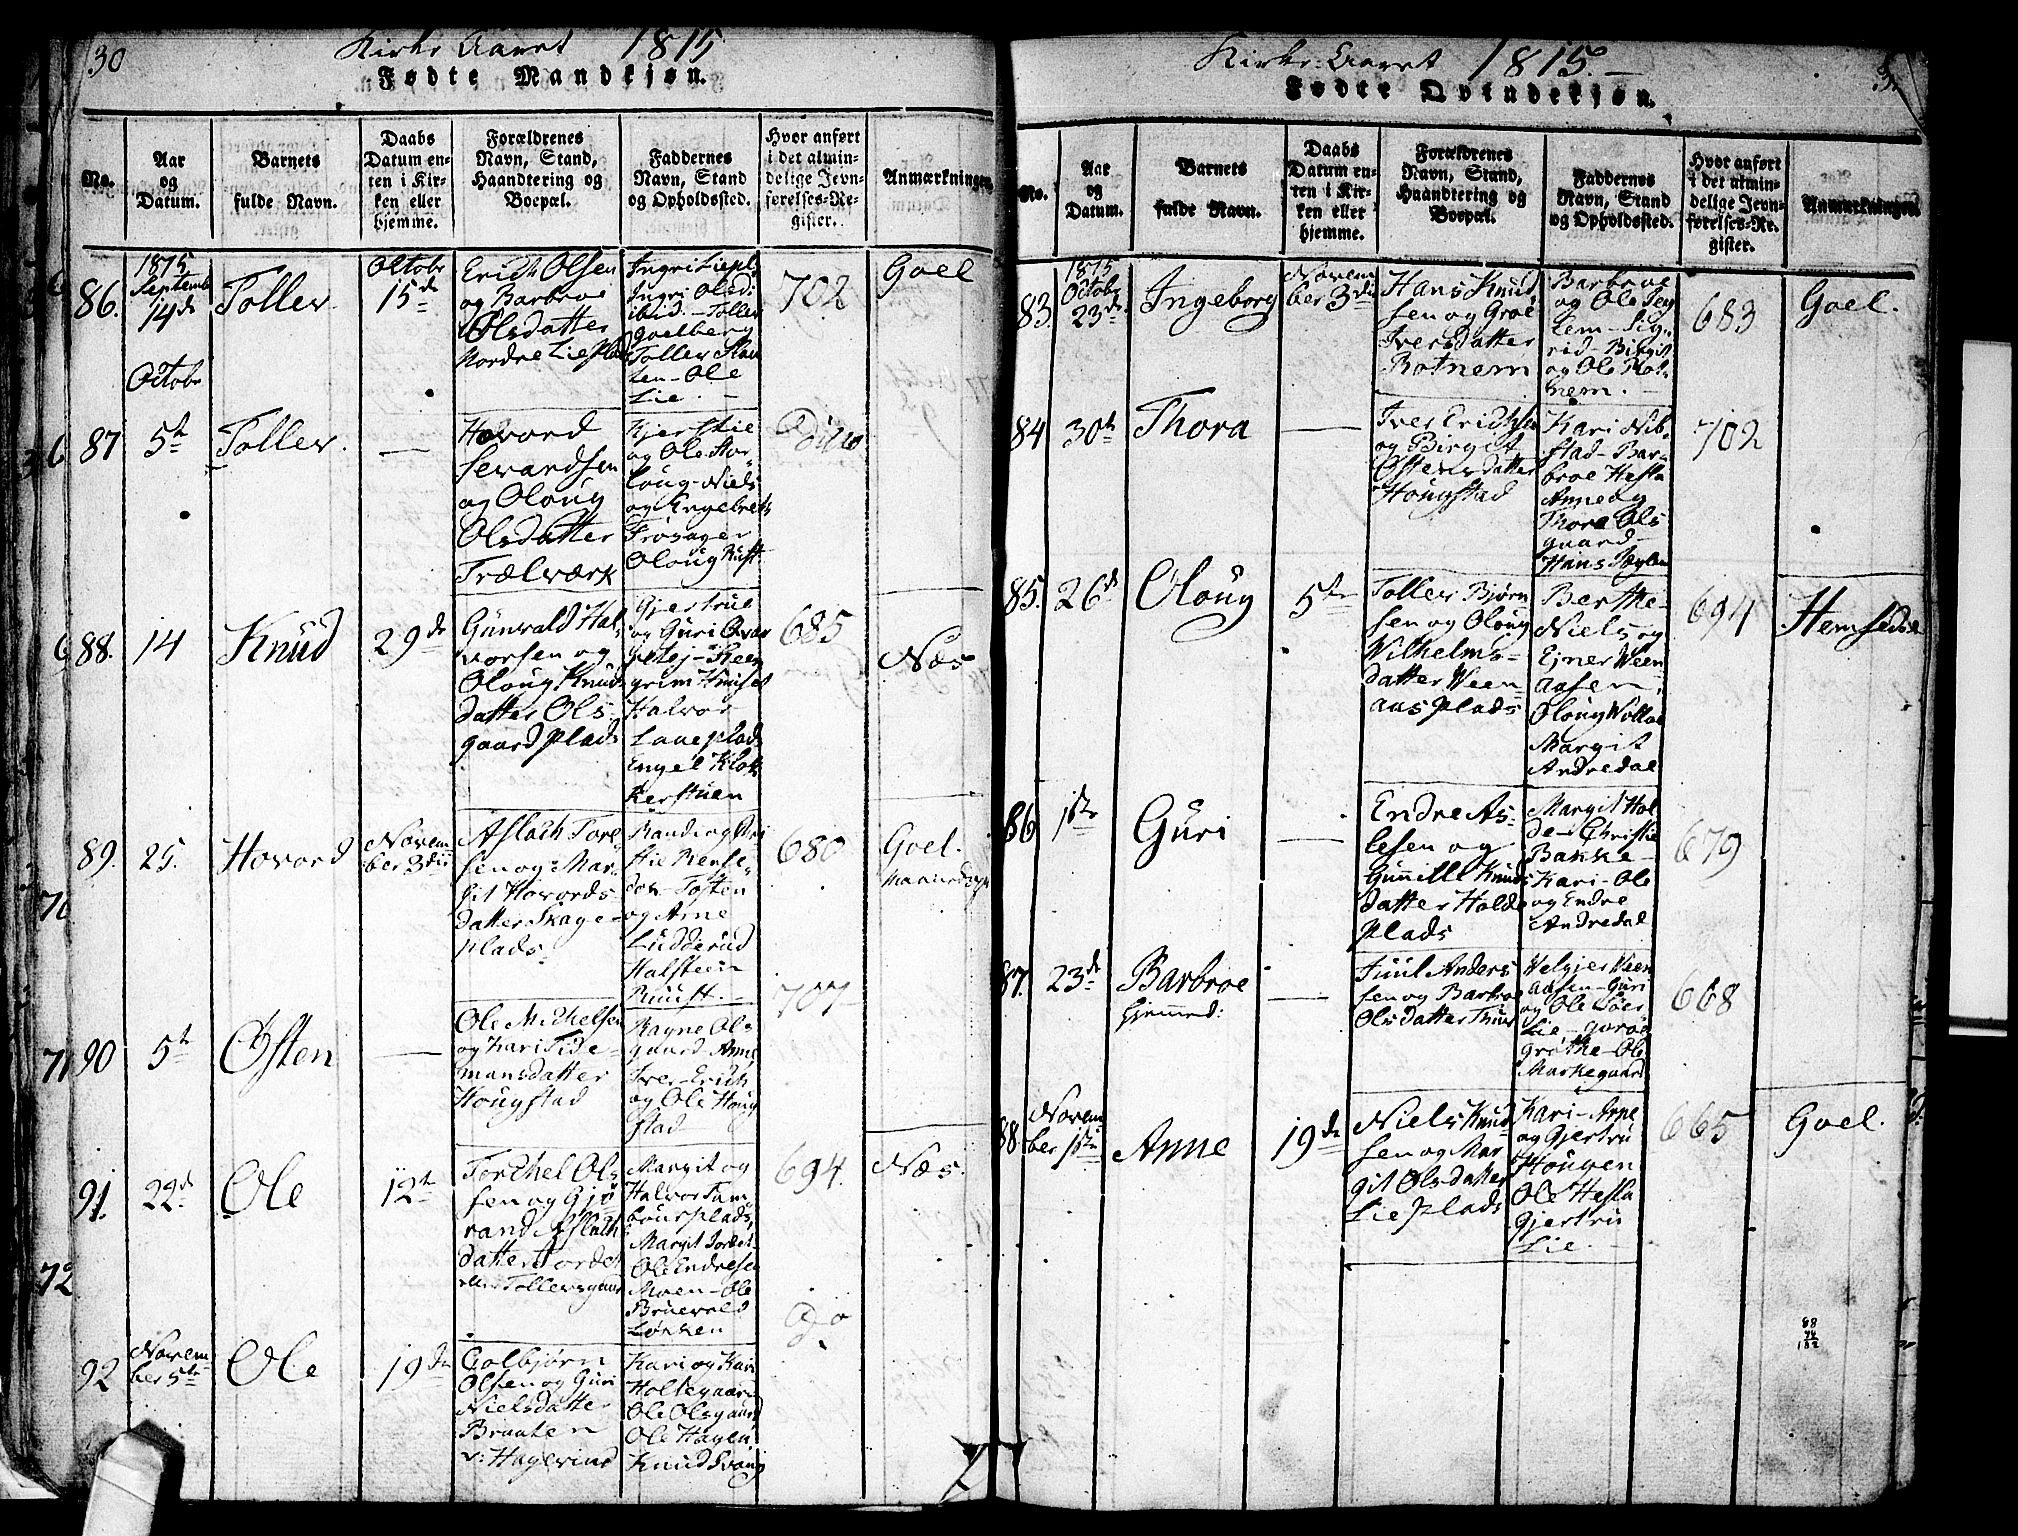 30
Kirke Aaret 1815
Fødte Mandkjøn.
No.
Aar
og
Datum.
Barnets
fulde Navn.
Daabs
Datum en-
ten i Kir-
ken eller
hjemme.
Forældrenes
Navn, Stand,
Haandtering og
Boepæl.
Faddernes
Navn, Stand
og Opholdssted.
Hvor anført
i det almin-
delige Jevn-
førelses-Re-
gister.
Anmærkninger
86.
1815
Septemb
14de
Tollev
Octobr
15de
Erich Olsen
og Barbroe
Olsdatter
Nordre Lie plad
Ingri Liepl.
Ingri Olsd
ibid. - Tollev
Goelberg
Tollev
- Ole
Lie. -
702
Goel
87
Octobr
5th
Tollev.
—
Hovord
Sevardsen
og Oloug
Olsdatter
Trælværk
Kjerstie
og Ole Stor
loug - Niels
og Engebreth
Trøsager
Oloug Rust
Ditto
88.
14
Knud
29de
Gunvald Hal
vorsen og
Oloug Knuds
datter Ols-
gaard plads
Gjertrue
og Guri
Reen
grim
Halvor
plads
Engel Klok
kerstuen
685
Næs
89.
25.
Hovord
Novem
ber 3die
Aslach Tore
sen og Mar-
git Hovords
datter Skage-
plads
Randi og Kri
stie Rense
dok - Tosten
og Arne
Ludderud
Halsteen
Ruust.
680
Goel.
90
5th
Østen
—
Ole Michelsen
og Kari Tide-
mansdatter
Hougstad
Ragne Ols
gaard - Anne
Iver - Erich
og Ole Houg
stad
707
91.
22de
Ole
12te
Torchel Ols
sen og Gjø
rand Aslach
datter Jordet
Tollevsgaard
Margit og
Halvor
plads
Margit Jordet
Ole Endresen
Moen - Ole
Bruevold
Løkken
694.
Næs.
92
Novem-
ber 5te
Ole
19de
Colbjørn
Olsen og Guri
Nielsdatter
Braaten
v: Hagerind
Kari og Kari
Holtegaard
Ole Olsgaard
Ole Hagen
Knud Svang
Do
70
71
72
Kirke-Aaret 1815. -
Fødte Qvindekjøn.
No.
Aar
og
Datum.
Barnets
fulde Navn.
Daabs
Datum en-
ten i Kir-
ken eller
hjemme.
Forældrenes
Navn, Stand,
Haandtering og
Boepæl.
Faddernes
Navn, Stand
og Opholdssted.
Hvor anført
i det almin-
delige Jevn-
førelses-Re-
gister.
Anmærkninger.
83.
1815
Octobr
23de
Ingeborg
Novem
ber 3die
Hans Knud
sen og Groe
Iversdatter
Rotnem
Barbroe
og Ole
Eem - Sig-
rid - Birgit
og Ole Rot-
nem. -
683
Goel.
84
30th
Thora
—
Iver Erichsen
og Birgit
Østensdatter
Hougstad
Kari Nib-
stad - Bar
broe Hesla
Anne og
Thore Ols
gaard -
Hans
702
85.
26de
Oloug
5te
Tollev Bjørn
sen og Oloug
Wilhelms-
datter Ween-
aas plads
Berthe -
Niels og
Ejner Ween
aasen,
Oloug
Margit
Andredal
694
Hemsedal
86
1ste
Guri
—
Endre As-
lesen og
Gunild Knuds
datter Holde
plads
Margit Hol
de - Christie
Bakke -
Kari - Ole
og Endre
Andredal
679
87.
23de
Barbroe
hjemmed:
—
Juul Anders
sen og Barbroe
Olsdatter
Helgjer Ween
aasen - Guri
og Ole
Lie -
Grøthe - Ole
Markegaard
668
88.
Novem-
ber 1ste
Anne
19de
Niels Knud
sen og Mar
git Olsdatter
Lie plads
Kari - Arne
og Gjertru
Hougen
Ole Hesla
Gjertru
Lie. -
665
Goel.
88
182